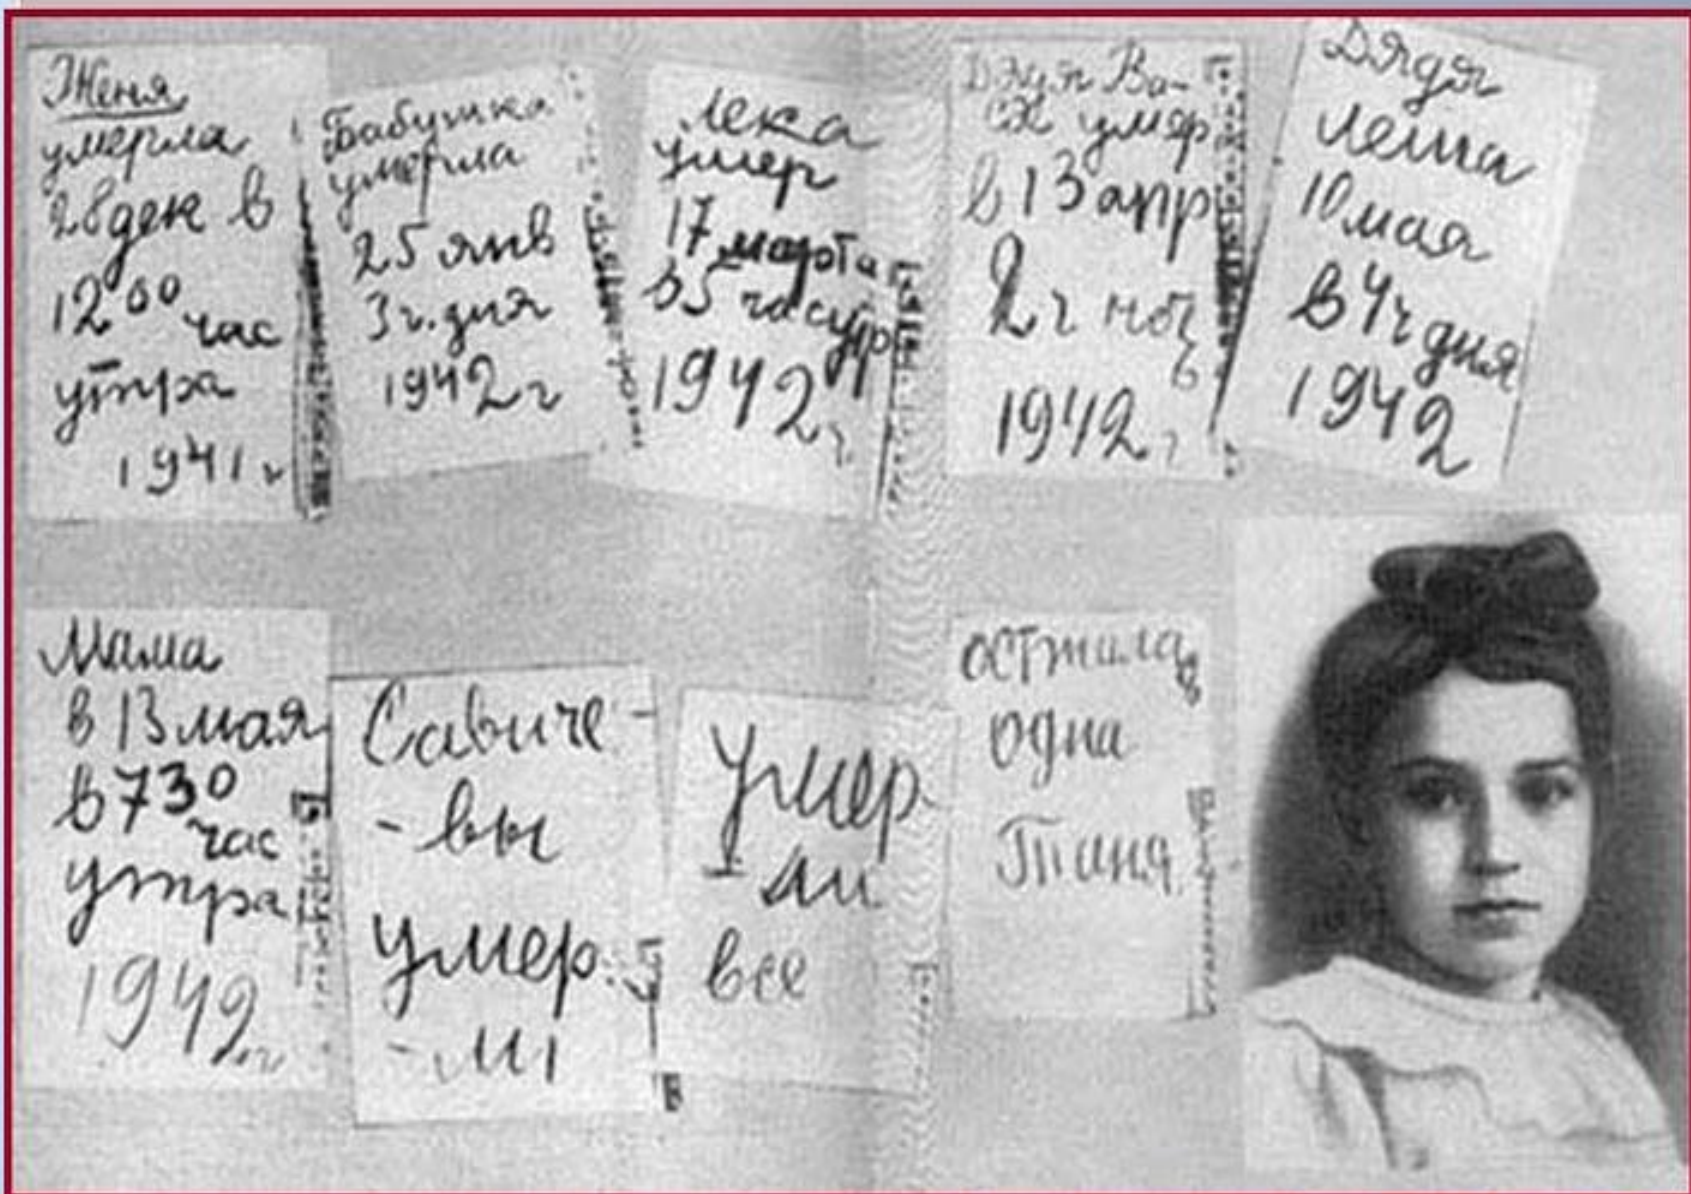 Женя
умерла
28 дек в
12 00 час
утра
1941 г
Бабушка
умерла
25 янв
3 ч. дня
1942 г
Лека
умер
17 марта
в 5 час утр
1942 г
Дядя Ва-
ся умер
в 13 апр
2 ч ноч
ь
1942 г
Дядя
Леша
10 мая
в 4 ч дня
1942
Мама
в 13 мая
в 7 30
час
утра
1942 г
Савиче-
-вы
умер.
-ли
Умер
-ли
все
Осталас
ь
одна
Таня